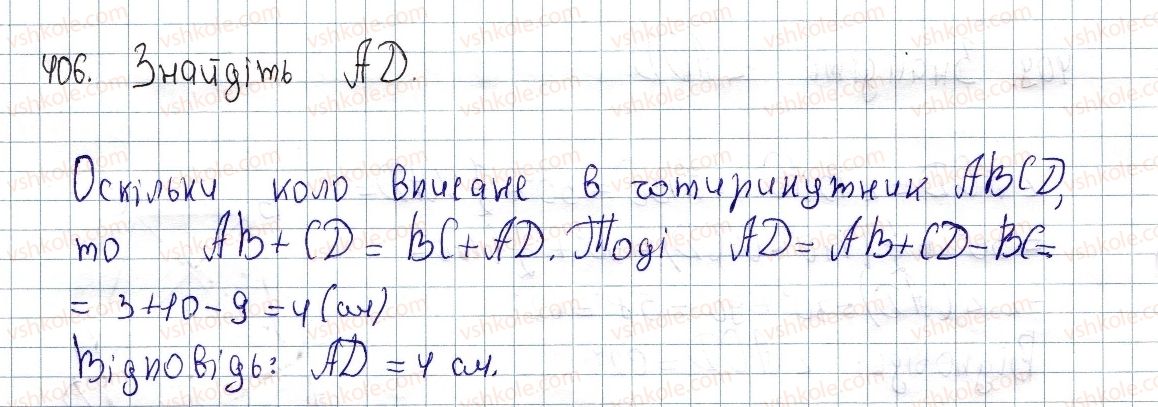 406. Знайдіть AD.
Оскільки коло вписане в чотирикутник ABCD,
то AB + CD = BC + AD. Тоді AD = AB + CD - BC =
= 3 + 10 - 9 = 4 (см)
Відповідь: AD = 4 см.